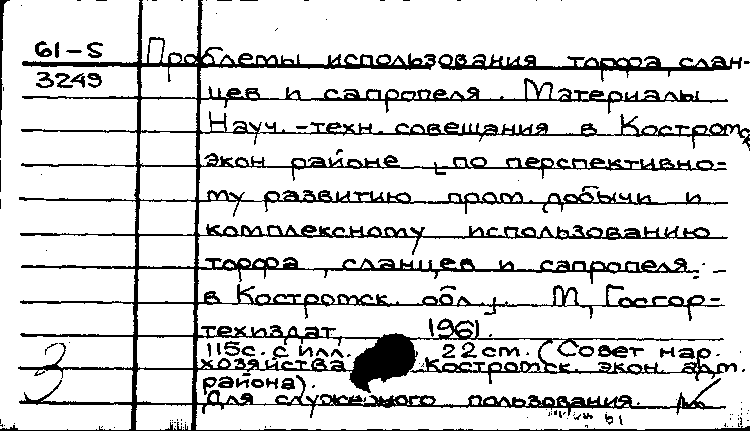 61-5 Проблемы использования торфа, слан-
3249 цев и сапропеля. Материалы
Науч.-техн. совещания в Костромск
экон районе [по перспективно=
му развитию пром. добычи и
комплексному использованию
торфа, сланцев и сапропеля
в Костромск. обл.]. М., Госгор=
техиздат, 1961.
115с. с илл. 22 cm. (Совет нар.
хозяйства Костромск. экон. адм.
района).
Для служебного пользования.
3